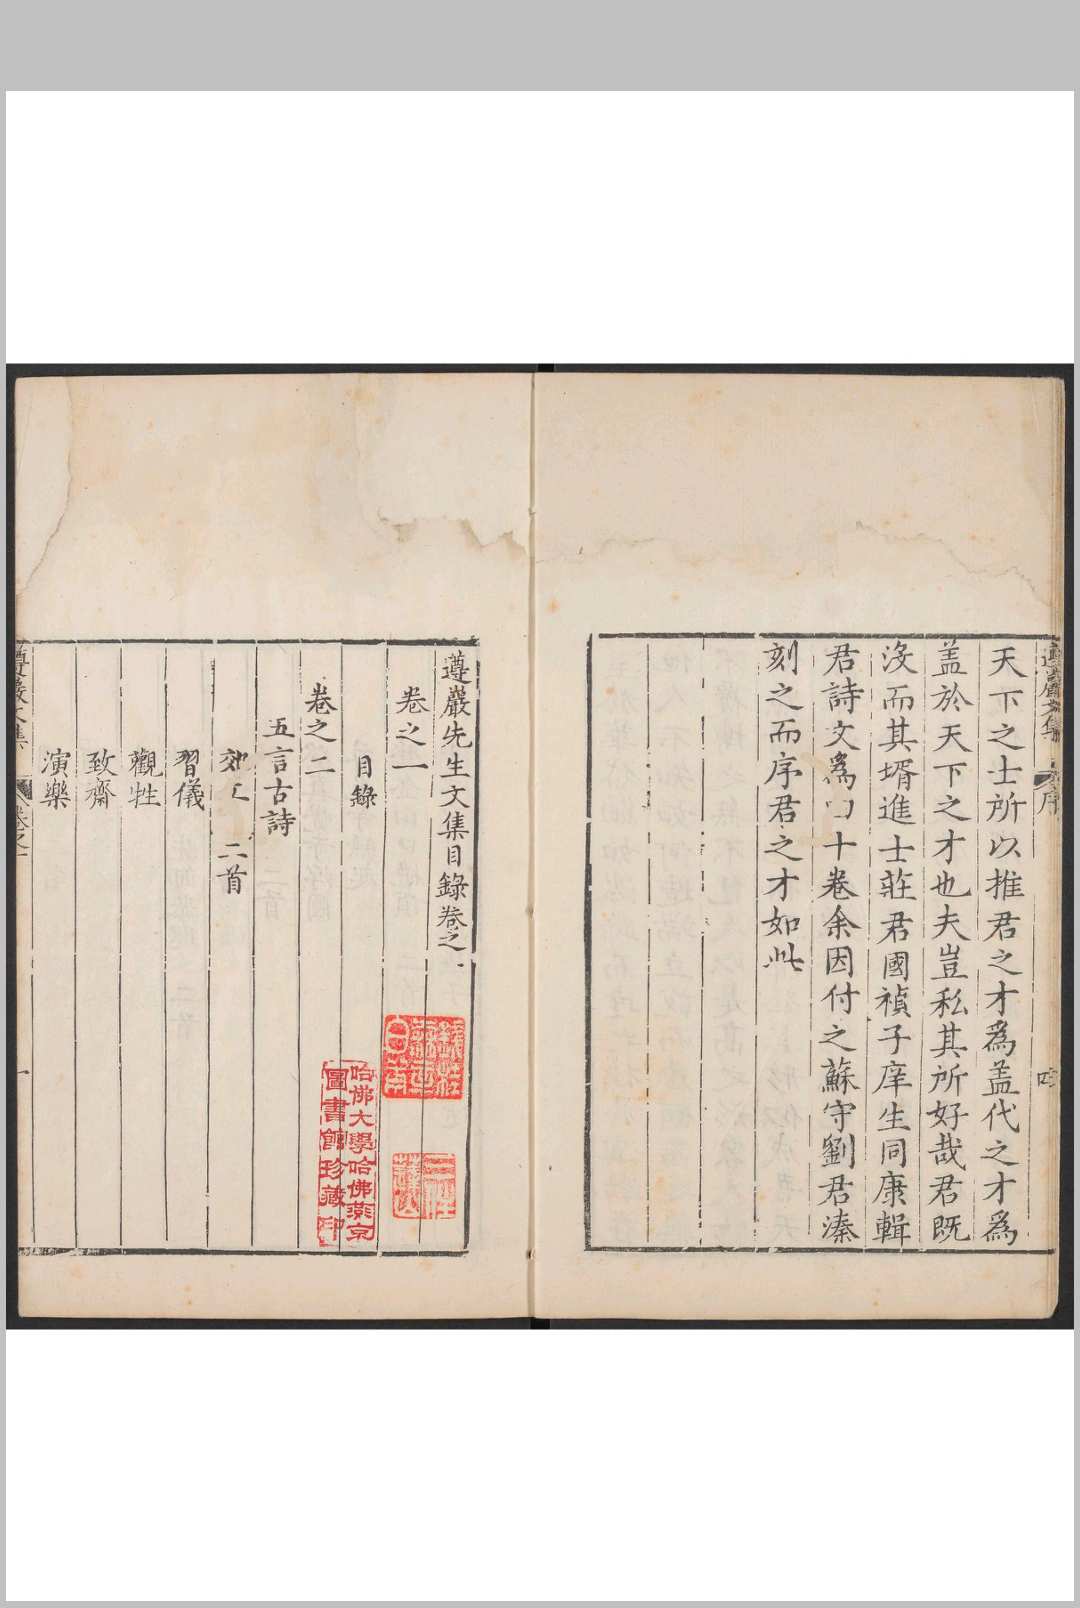 天下之士所以推君之才爲盖代之才爲
盖於天下之才也夫豈私其所好哉君既
沒而其壻進士莊君國禎子庠生同康輯
君詩文爲四十卷余因付之蘇守劉君溱
刻之而序君之才如此
序
四
遵巖先生文集目錄卷之一
卷之一
目錄
卷之二
五言古詩
二首
習儀
觀牲
致齋
演樂
哈佛大學哈佛燕京
圖書館珍藏印